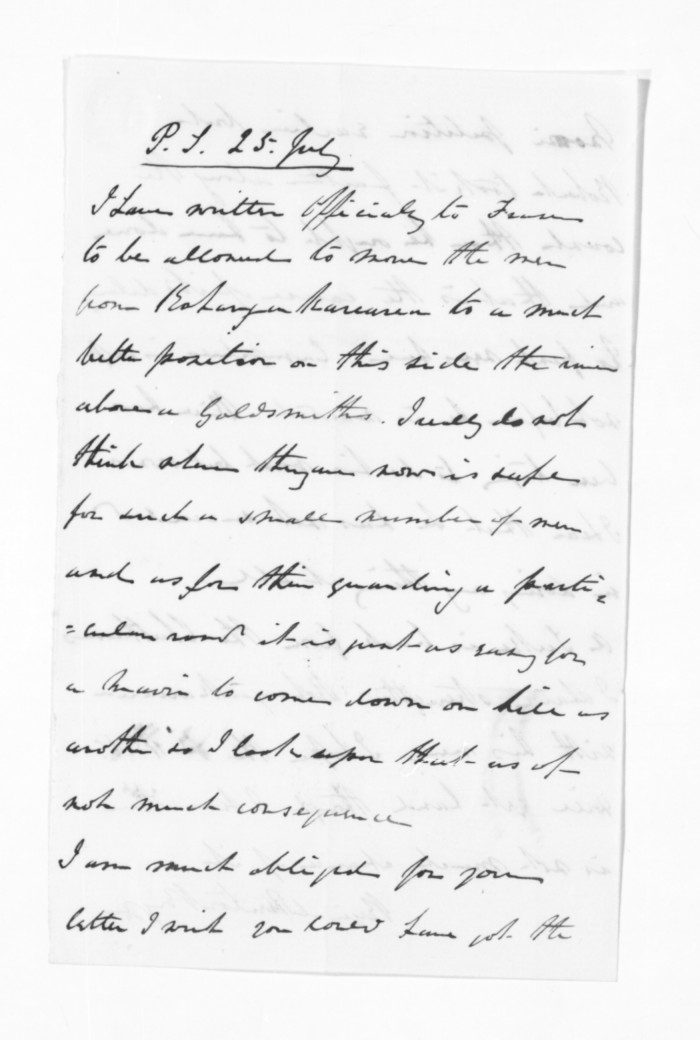 P.S. 25. July
I have written Officially to Fraser
to be allowed to move the men
from to a much
better position on this side the river
above a Goldsmiths. I really do not
think where they are now is safe
for such a small number of men
and as for their guarding a parti=
=cular road it is just as easy for
a Maori to come down on hill as
another so I look upon that as of
not much consequence
I am much obliged for your
letter I wish you could have got the